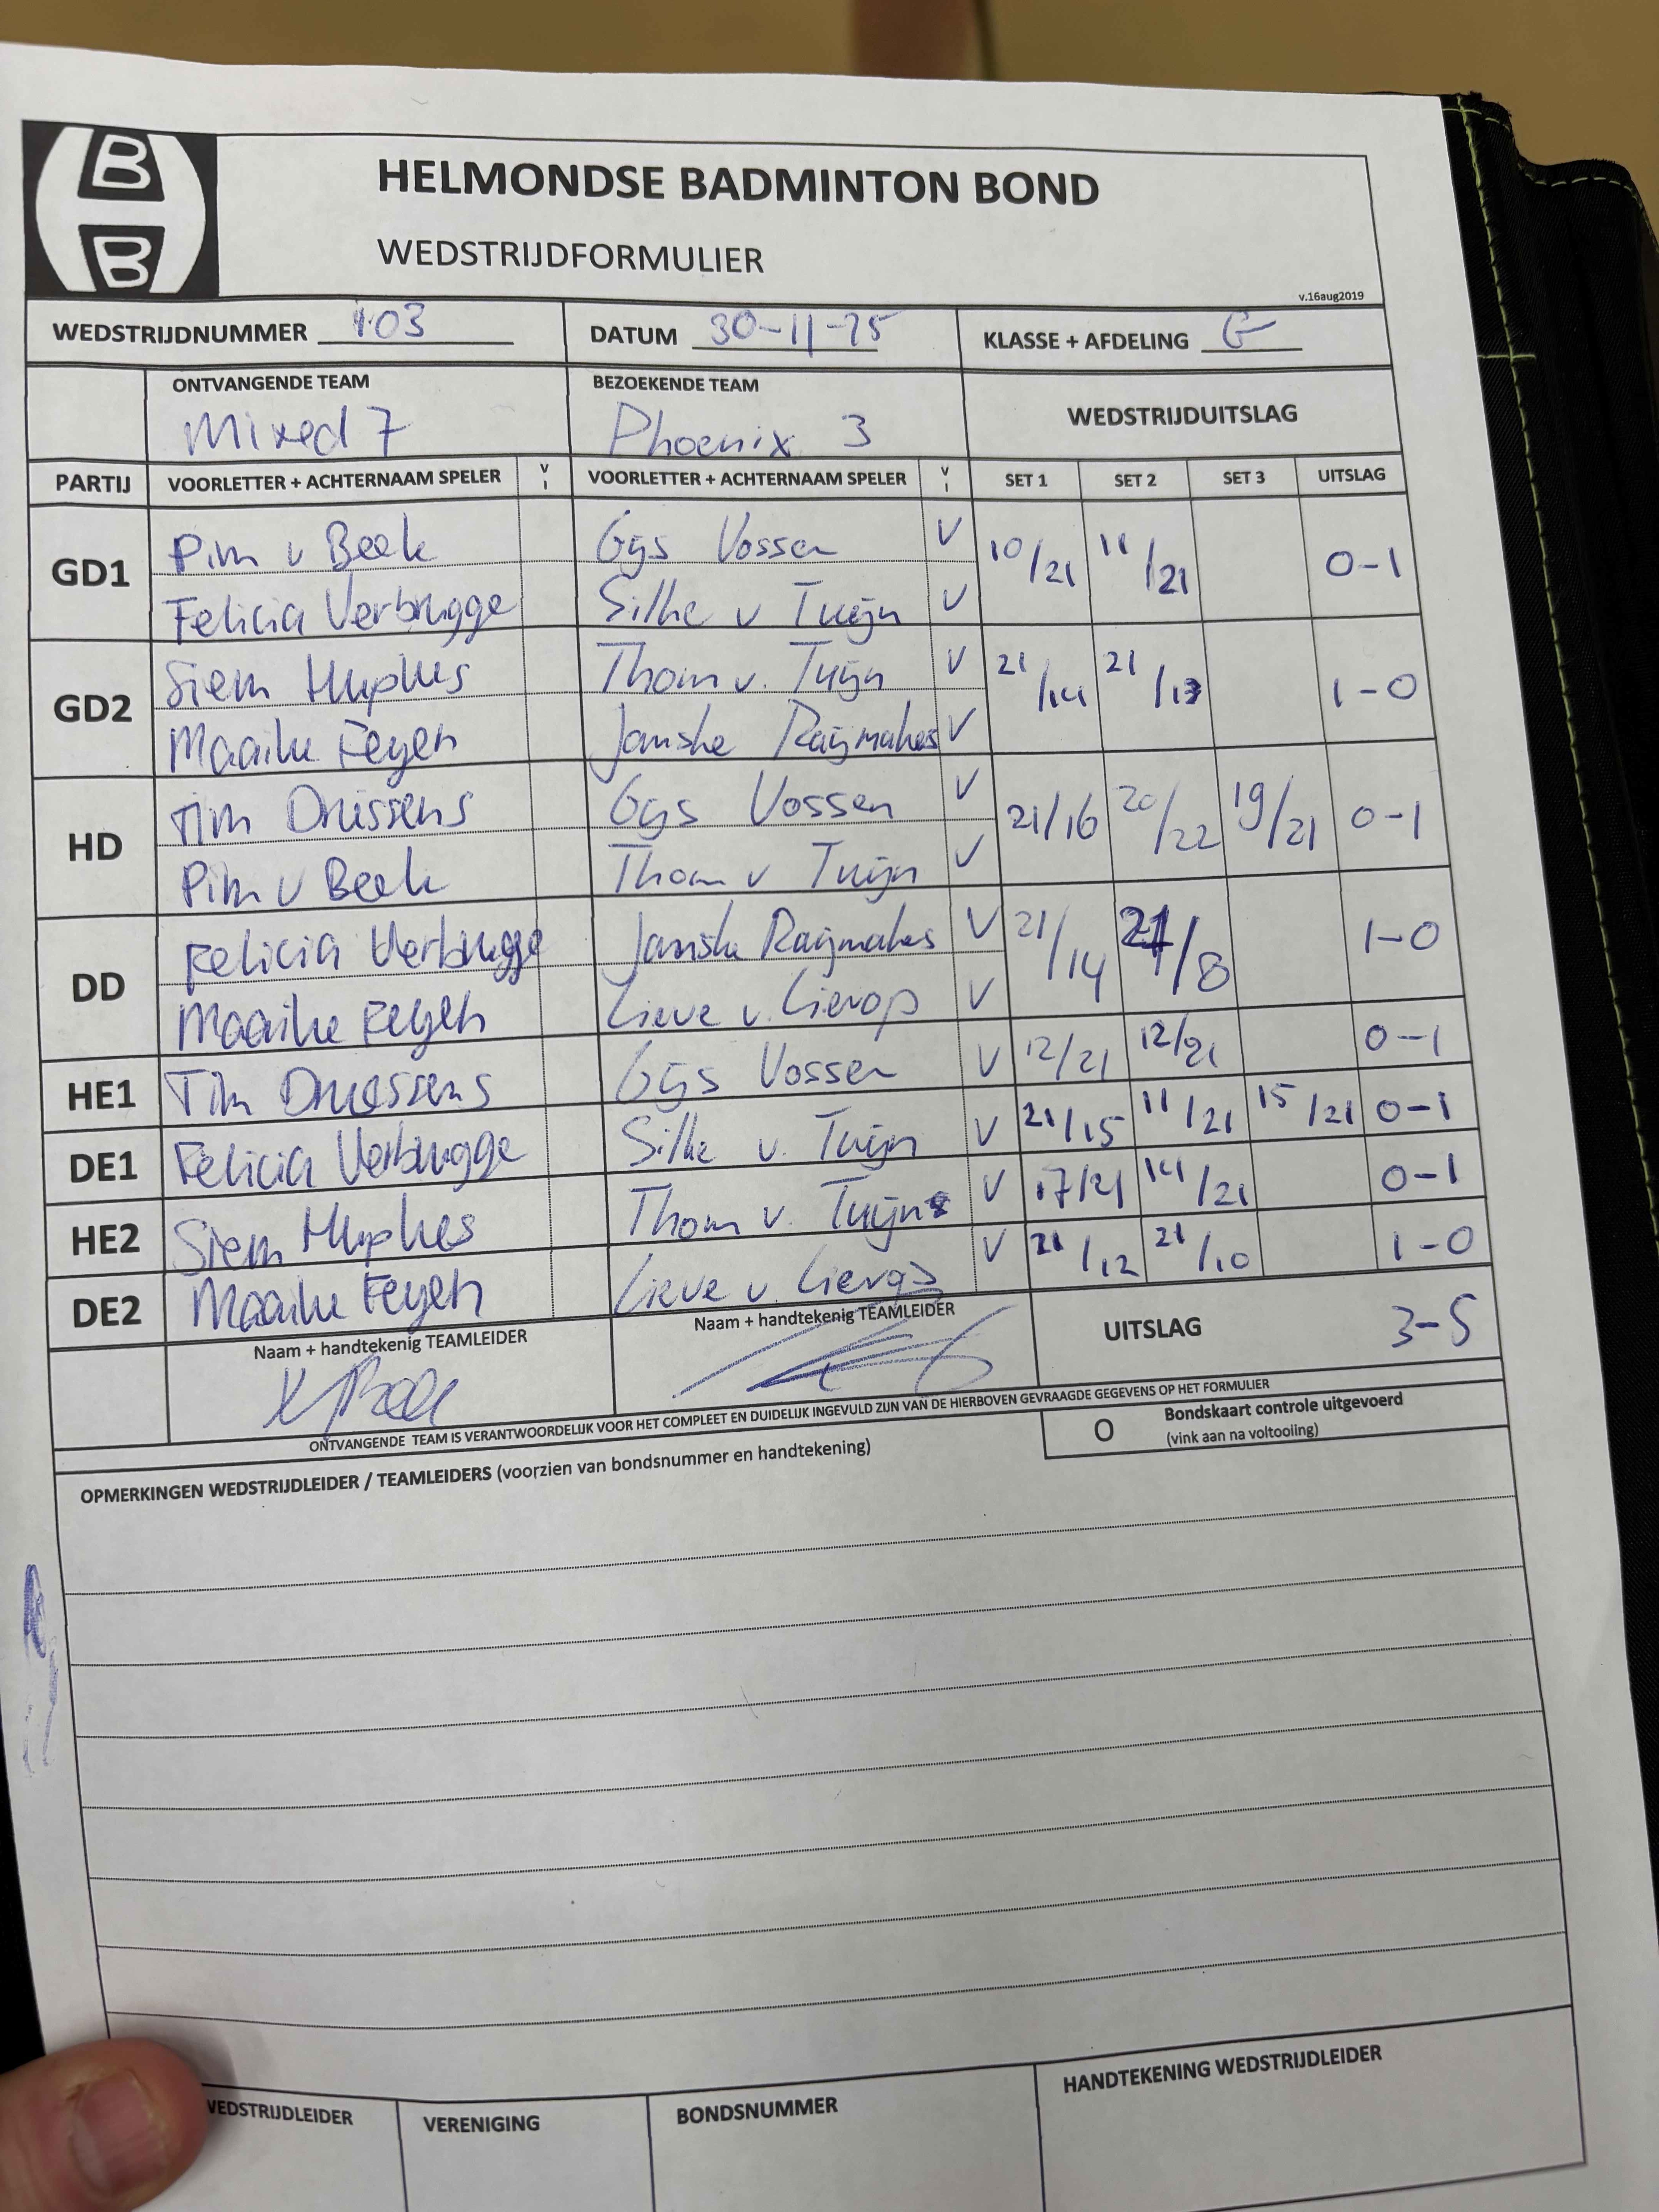 B
B
HELMONDSE BADMINTON BOND
WEDSTRIJDFORMULIER
v.16aug2019
WEDSTRIJDNUMMER 103 DATUM 30-11-25 KLASSE + AFDELING G
ONTVANGENDE TEAM BEZOEKENDE TEAM WEDSTRIJDUITSLAG
Mixed 7 Phoenix 3
PARTIJ VOORLETTER + ACHTERNAAM SPELER V I VOORLETTER + ACHTERNAAM SPELER V I SET 1 SET 2 SET 3 UITSLAG
GD1 Pim v Beek Gijs Vossen V 10/21 11/21 0-1
Felicia Verbrugge Silke v Tuijn V
GD2 Siem Thom v. Tuijn V 21/14 21/13 1-0
Maaike Feyen Janske Raijmakes V
HD Tim Driessens Gijs Vossen V 21/16 20/22 19/21 0-1
Pim v Beek Thom v Tuijn V
DD Felicia Verbrugge Janske Raijmakes V 21/14 21/8 1-0
Maaike Feyen Lieve v. Lierop V
HE1 Tim Driessens Gijs Vossen V 12/21 12/21 0-1
DE1 Felicia Verbrugge Silke v. Tuijn V 21/15 11/21 15/21 0-1
HE2 Siem Thom v. Tuijn V 17/21 14/21 0-1
DE2 Maaike Feyen Lieve v. Lierop V 21/12 21/10 1-0
Naam + handtekenig TEAMLEIDER Naam + handtekenig TEAMLEIDER UITSLAG 3-5
ONTVANGENDE TEAM IS VERANTWOORDELIJK VOOR HET COMPLEET EN DUIDELIJK INGEVULD ZIJN VAN DE HIERBOVEN GEVRAAGDE GEGEVENS OP HET FORMULIER
O Bondskaart controle uitgevoerd
(vink aan na voltooiing)
OPMERKINGEN WEDSTRIJDLEIDER / TEAMLEIDERS (voorzien van bondsnummer en handtekening)
WEDSTRIJDLEIDER VERENIGING BONDSNUMMER HANDTEKENING WEDSTRIJDLEIDER